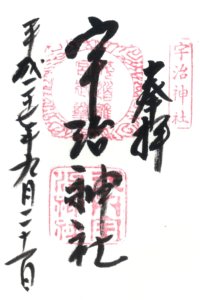 宇治神社
奉拝
宇治神社
平成二十七年九月二十一日